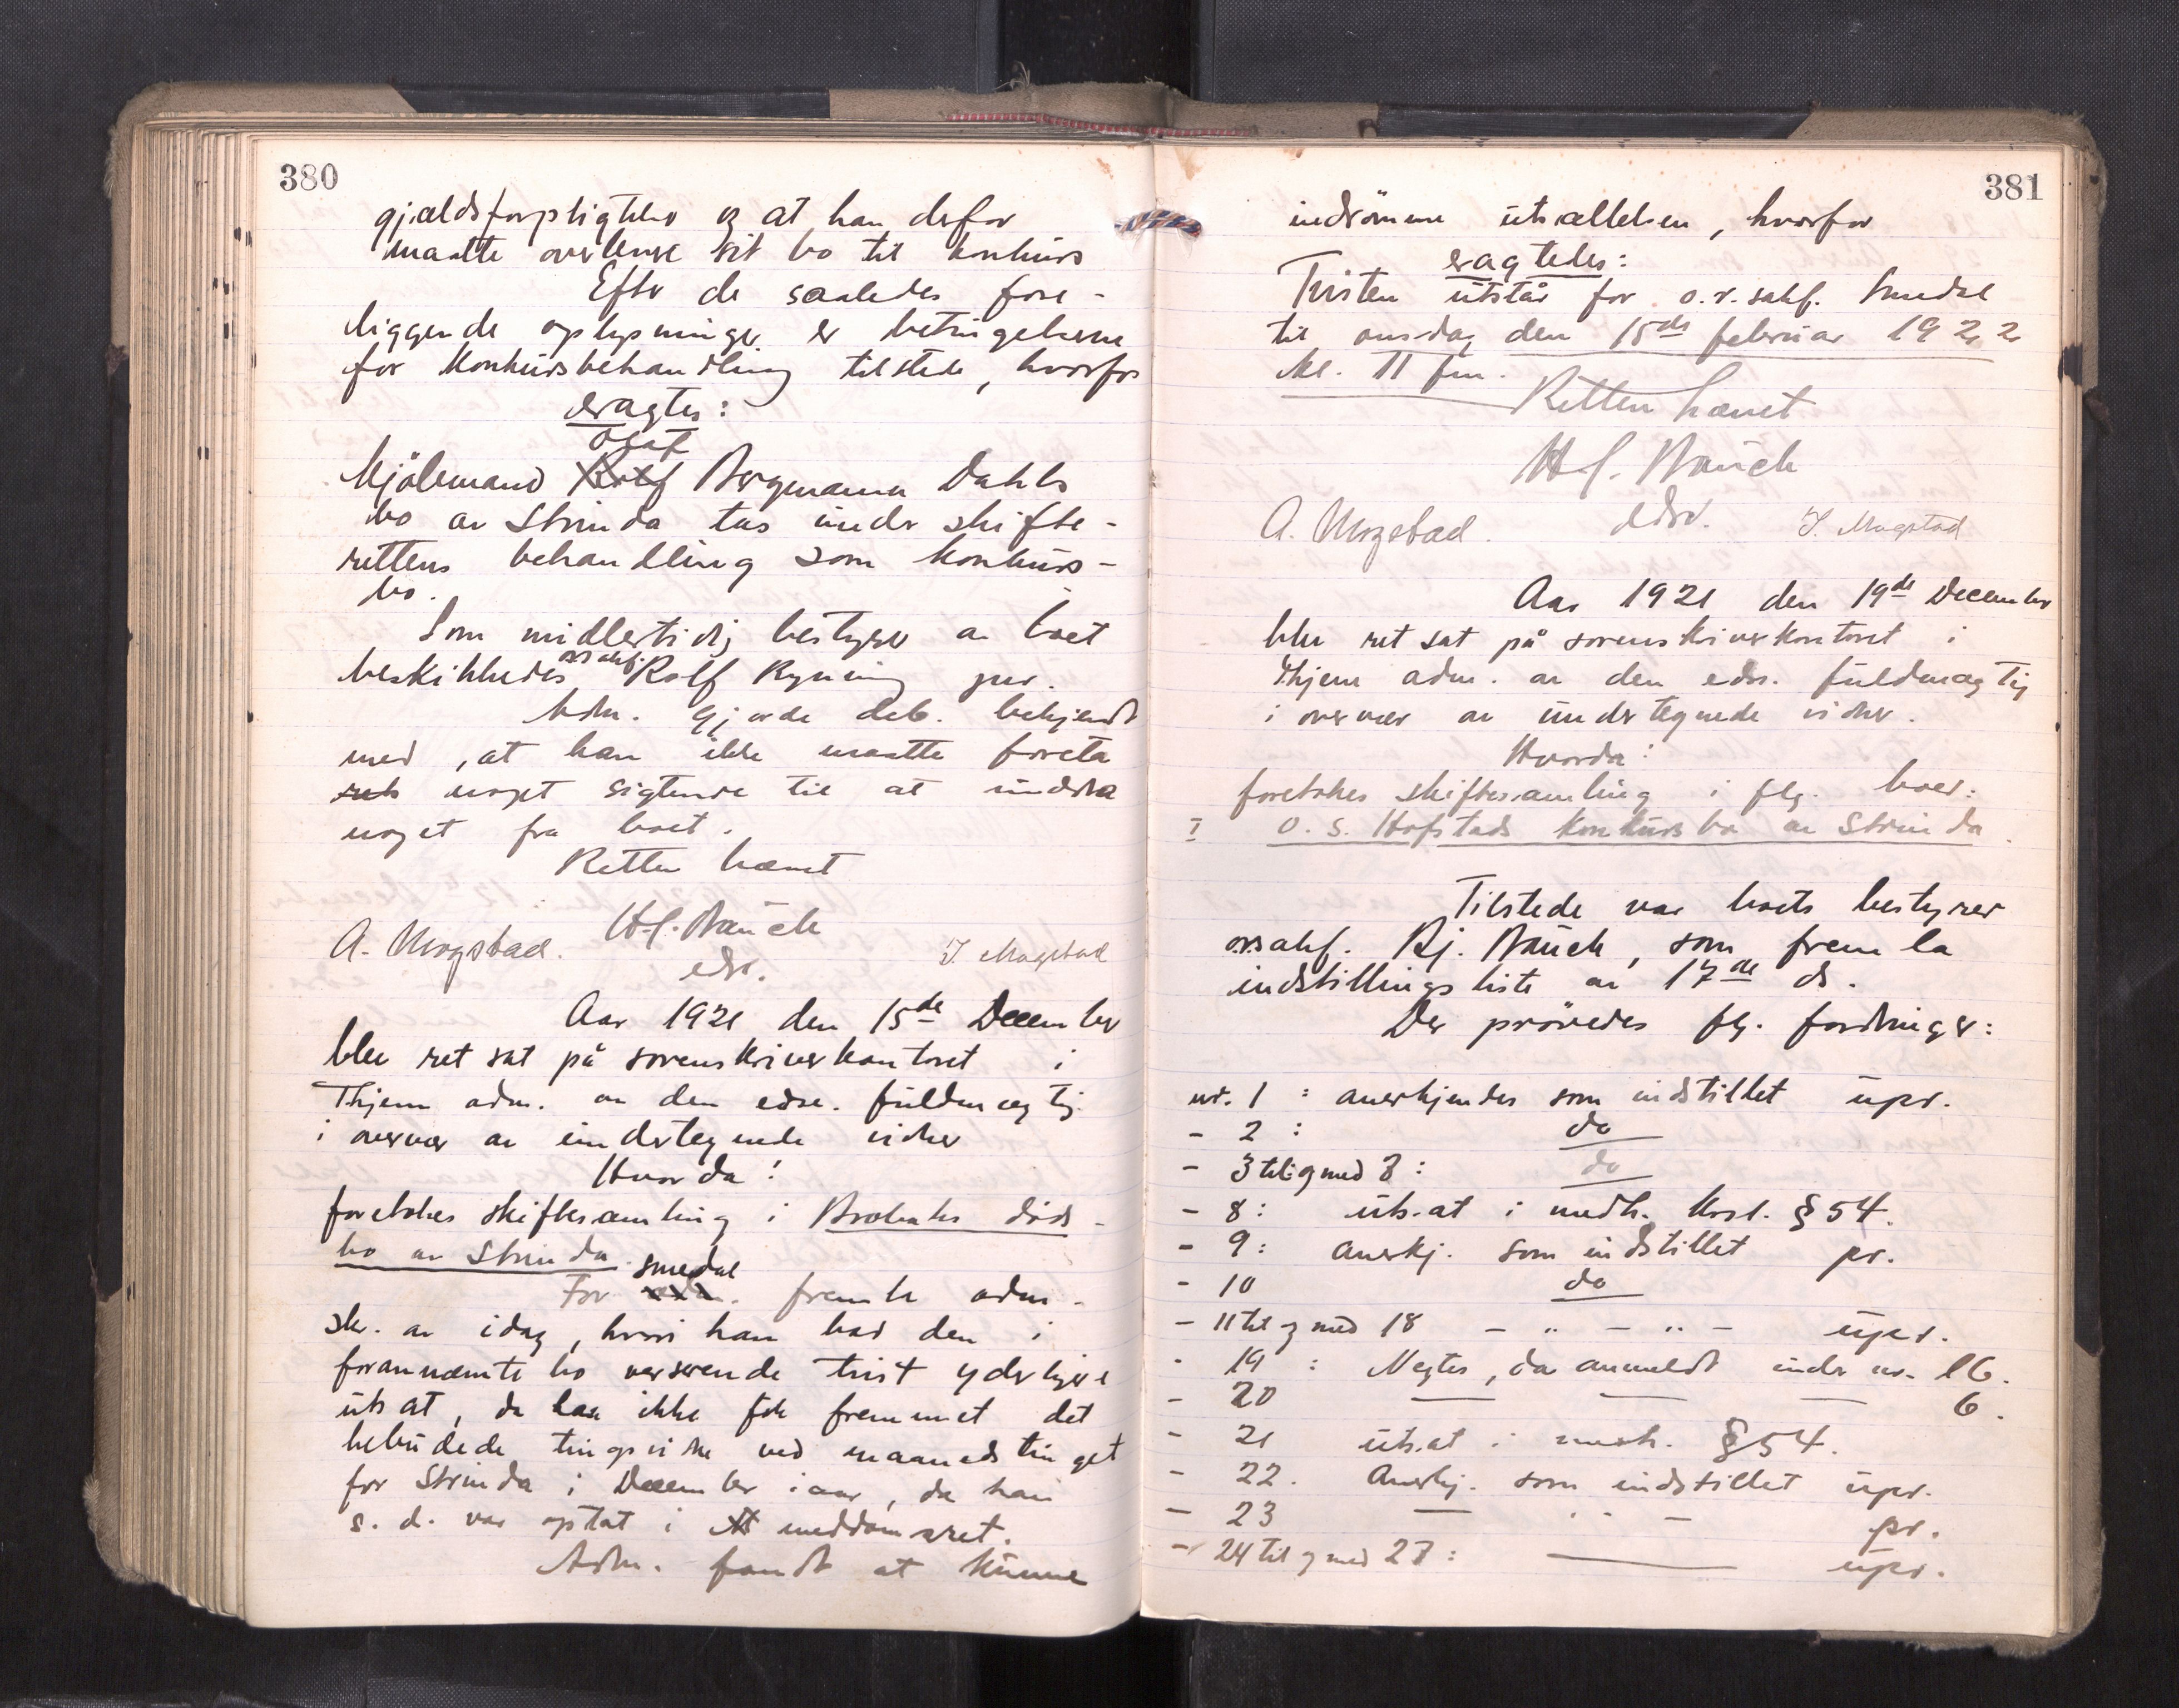 380
gjældsforpligtelser og at han derfor
maatte overlevere sit bo til konkurs
Efter de saaledes fore-
liggende oplysninger er betingelserne
for konkursbehandling tilstede, hvorfor
eragtes:
Olaf
Kjøbmand Rolf Bergmann Dahls
bo av Strinda tas under skifte-
rettens behandling som konkurs-
bo.
Som midlertidig bestyrer av boet
beskikkedes orsakf. Rolf Ryning jur.
Adm. gjorde deb. bekjendt
med, at han ikke maatte foreta
noget sigtende til at unddra
noget fra boet.
Retten hævet
H.f. Bauck
A. Mogstad. edsv. I. Mogstad
Aar 1921 den 15de December
blev ret sat på sorenskriverkontoret i
Thjem adm. av den edsv. fuldmægtig
i overvær av undertegnede vidner
Hvorda:
foretokes skiftesamling i Brobaks døds-
bo av Strinda.
smedal
For adm. fremla adm.
skr. av idag, hvori han bad den i
forannævnte bo verserende tvist yderligere
utsat, da han ikke fik fremmet det
bebudede tingsvidne ved maanedstinget
for Strinda i December iaar, da han
s. d. var optat i meddomsret.
Adm. fandt at kunne
381
indrømme utsættelsen, hvorfor
eragtedes:
Tvisten utstår for o.r.sakf. Smedal
til onsdag den 15de februar 1922
kl. 11 fm.
Retten hævet
H.f. Bauck
A. Mogstad. edsv. I. Mogstad
Aar 1921 den 19de December
blev ret sat på sorenskriverkontoret i
Thjem adm. av den edsv. fuldmægtig
i overvær av undertegnede vidner.
Hvorda:
foretokes skiftesamling i flg. boer:
I O. S. Hofstads konkursbo av Strinda.
Tilstede var boets bestyrer
orsakf. Rj. Bauck, som fremla
indstillingsliste av 17de ds.
Der prøvedes flg. fordringer:
nr. 1 : anerkjendes som indstillet upr.
- 2 : do
- 3 til og med 7 : do
- 8 : uts.at i medh. Krsl. § 54.
- 9 : anerkj. som indstillet pr.
- 10 do
- 11 til og med 18 - " - " - upr.
- 19 : Negtes, da anmeldt under nr. 16.
- 20 — — — 6.
- 21 uts.at i medh. § 54.
- 22. Anerkj. som indstillet upr.
- 23 — " - pr.
- 24 til og med 27 : — upr.